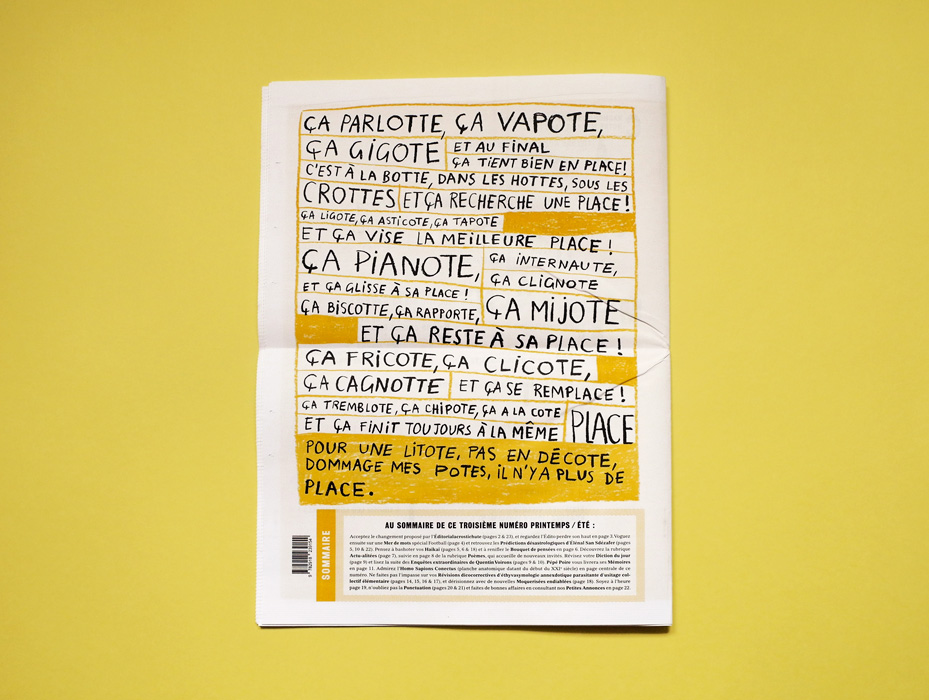 ÇA PARLOTTE, ÇA VAPOTE,
ÇA GIGOTE ET AU FINAL
ÇA TIENT BIEN EN PLACE!
C'EST À LA BOTTE, DANS LES HOTTES, SOUS LES
CROTTES ET ÇA RECHERCHE UNE PLACE!
ÇA LIGOTE, ÇA ASTICOTE, ÇA TAPOTE
ET ÇA VISE LA MEILLEURE PLACE!
ÇA PIANOTE, ÇA INTERNAUTE,
ÇA CLIGNOTE
ET ÇA GLISSE À SA PLACE!
ÇA BISCOTTE, ÇA RAPPORTE, ÇA MIJOTE
ET ÇA RESTE À SA PLACE!
ÇA FRICOTE, ÇA CLICOTE,
ÇA CAGNOTTE ET ÇA SE REMPLACE!
ÇA TREMBLOTE, ÇA CHIPOTE, ÇA A LA COTE
ET ÇA FINIT TOUJOURS À LA MÊME PLACE
POUR UNE LITOTE, PAS EN DÉCOTE,
DOMMAGE MES POTES, IL N'Y A PLUS DE
PLACE.
SOMMAIRE
AU SOMMAIRE DE CE TROISIÈME NUMÉRO PRINTEMPS / ÉTÉ :
Acceptez le changement proposé par l'Éditorialacrostichute (pages 2 & 23), et regardez l'Édito perdre son haut en page 3. Voguez
ensuite sur une Mer de mots spécial Football (page 4) et retrouvez les Prédictions désastrologiques d'Elénaï San Sétzafer (pages
5, 10 & 22). Pensez à bashoter vos Haïkaï (pages 5, 6 & 16) et à renifler le Bouquet de pensées en page 6. Découvrez la rubrique
Actu-alitées (page 7), suivie en page 8 de la rubrique Poèmes, qui accueille de nouveaux invités. Révisez votre Diction du jour
(page 9) et lisez la suite des Enquêtes extraordinaires de Quentin Voirons (pages 9 & 10). Pépé Poire vous livrera ses Mémoires
en page 11. Admirez l'Homo Sapiens Conectus (planche anatomique datant du début du XXIe siècle) en page centrale de ce
numéro. Ne faites pas l'impasse sur vos Révisions dicocorrectives d'éthyvasymologie anecdotique parasitante d'usitage col-
lectif élémentaire (pages 14, 15, 16 & 17), et dérisionnez avec de nouvelles Moquettisées endiablées (page 18). Soyez à l'heure
page 19, n'oubliez pas la Ponctuation (pages 20 & 21) et faites de bonnes affaires en consultant nos Petites Annonces en page 22.